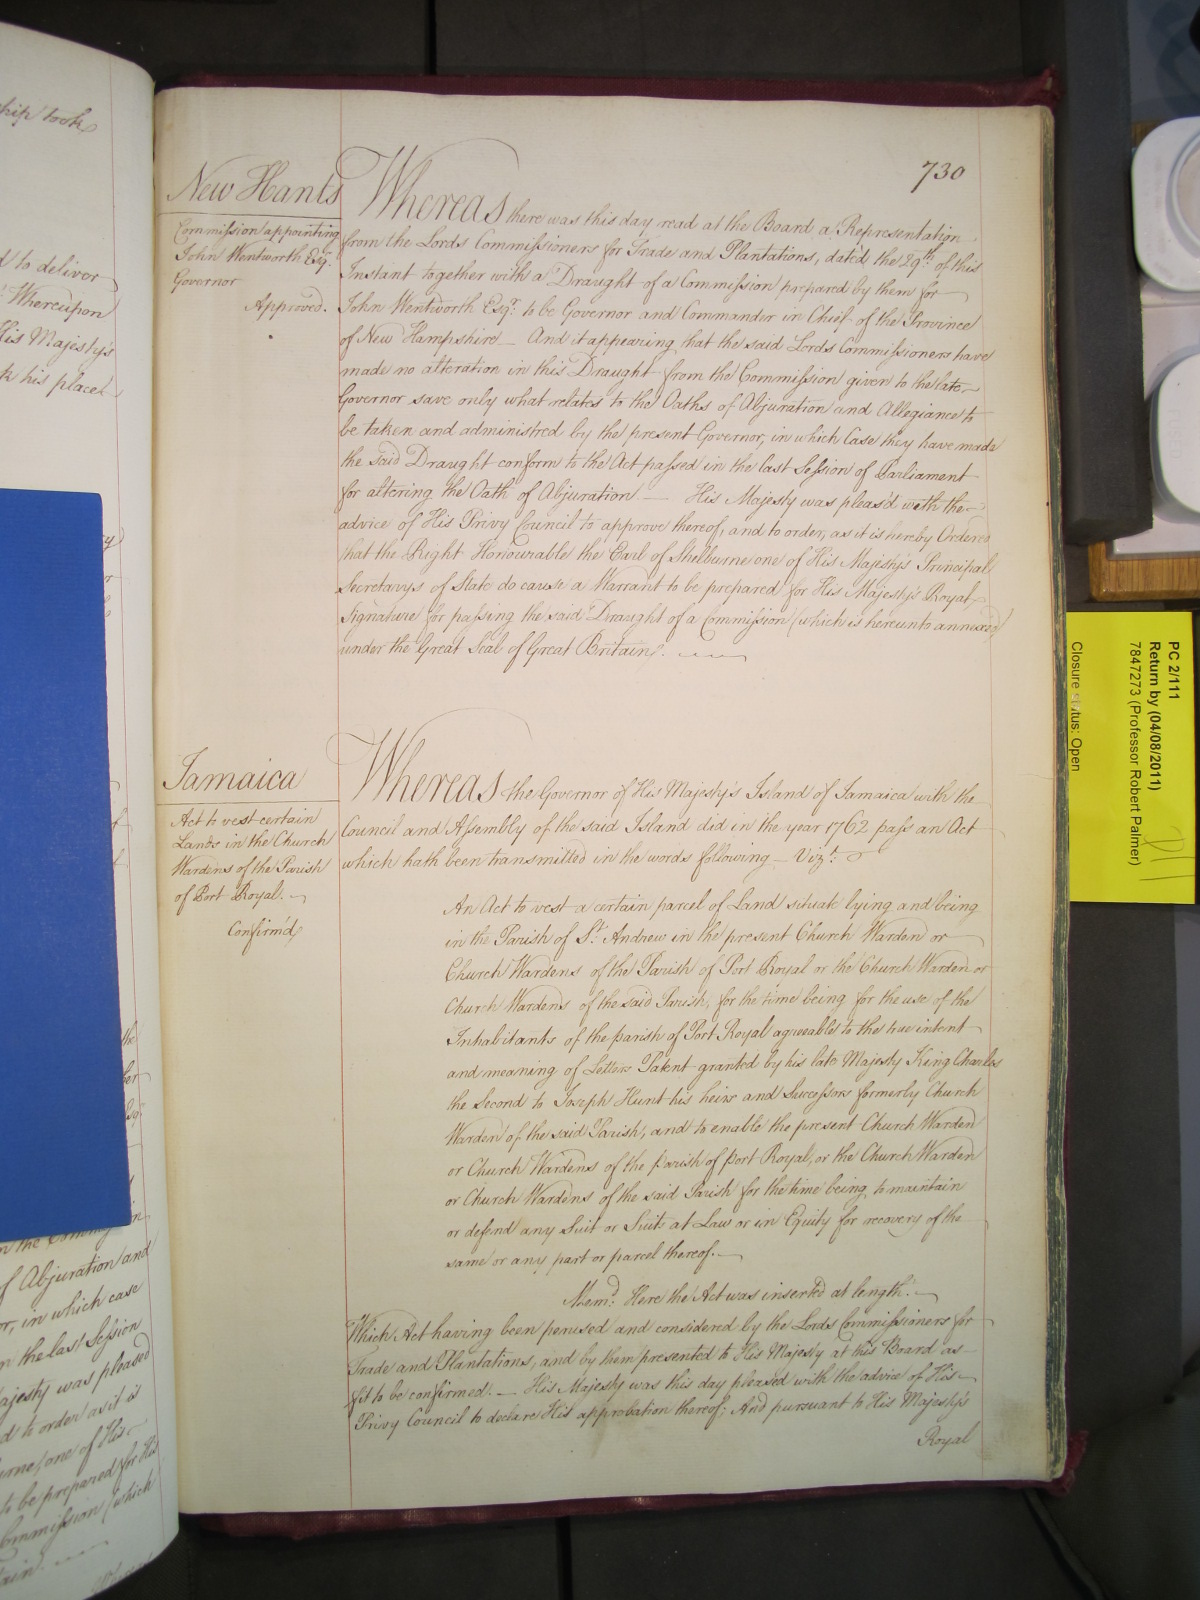 ship took
d to deliver
Whereupon
His Majesty's
k his place
the
ber
Esq.
of Abjuration and
or, in which case
n the last Session
Majesty was pleased
d to order as it is
urne, one of His
to be prepared for His
Commission (which
730
New Hants
Commission appointing
John Wentworth Esqr.
Governor
Approved.
Whereas there was this day read at the Board a Representation
from the Lords Commissioners for Trade and Plantations, dated the 29th. of this
Instant together with a Draught of a Commission prepared by them for
John Wentworth Esqr. to be Governor and Commander in Chief of the Province
of New Hampshire — And it appearing that the said Lords Commissioners have
made no alteration in this Draught from the Commission given to the late
Governor save only what relates to the Oaths of Abjuration and Allegiance to
be taken and administred by the present Governor, in which Case they have made
the said Draught conform to the Act passed in the last Session of Parliament
for altering the Oath of Abjuration — His Majesty was pleas'd with the
advice of His Privy Council to approve thereof, and to order, as it is hereby Ordered
that the Right Honourable the Earl of Shelburne one of His Majesty's Principal
Secretarys of State do cause a Warrant to be prepared for His Majesty's Royal
Signature for passing the said Draught of a Commission (which is hereunto annexed)
under the Great Seal of Great Britain.
Jamaica
Act to vest certain
Lands in the Church
Wardens of the Parish
of Port Royal.
Confirm'd
Whereas the Governor of His Majesty's Island of Jamaica with the
Council and Assembly of the said Island did in the year 1762 pass an Act
which hath been transmitted in the words following — Vizt.
An Act to vest a certain parcel of Land situate lying and being
in the Parish of St. Andrew in the present Church Warden or
Church Wardens of the Parish of Port Royal or the Church Warden or
Church Wardens of the said Parish, for the time being for the use of the
Inhabitants of the parish of Port Royal agreeable to the true intent
and meaning of Letters Patent granted by his late Majesty King Charles
the Second to Joseph Hunt his heirs and Successors formerly Church
Warden of the said Parish, and to enable the present Church Warden
or Church Wardens of the parish of Port Royal, or the Church Warden
or Church Wardens of the said Parish for the time being to maintain
or defend any Suit or Suits at Law or in Equity for recovery of the
same or any part or parcel thereof.
Memd: Here the Act was inserted at length.
Which Act having been perused and considered by the Lords Commissioners for
Trade and Plantations, and by them presented to His Majesty at this Board as
fit to be confirmed. — His Majesty was this day pleased with the advice of His
Privy Council to declare His approbation thereof; And pursuant to His Majesty's
Royal
PC 2/111
Return by (04/08/2011)
7847273 (Professor Robert Palmer)
Closure status: Open